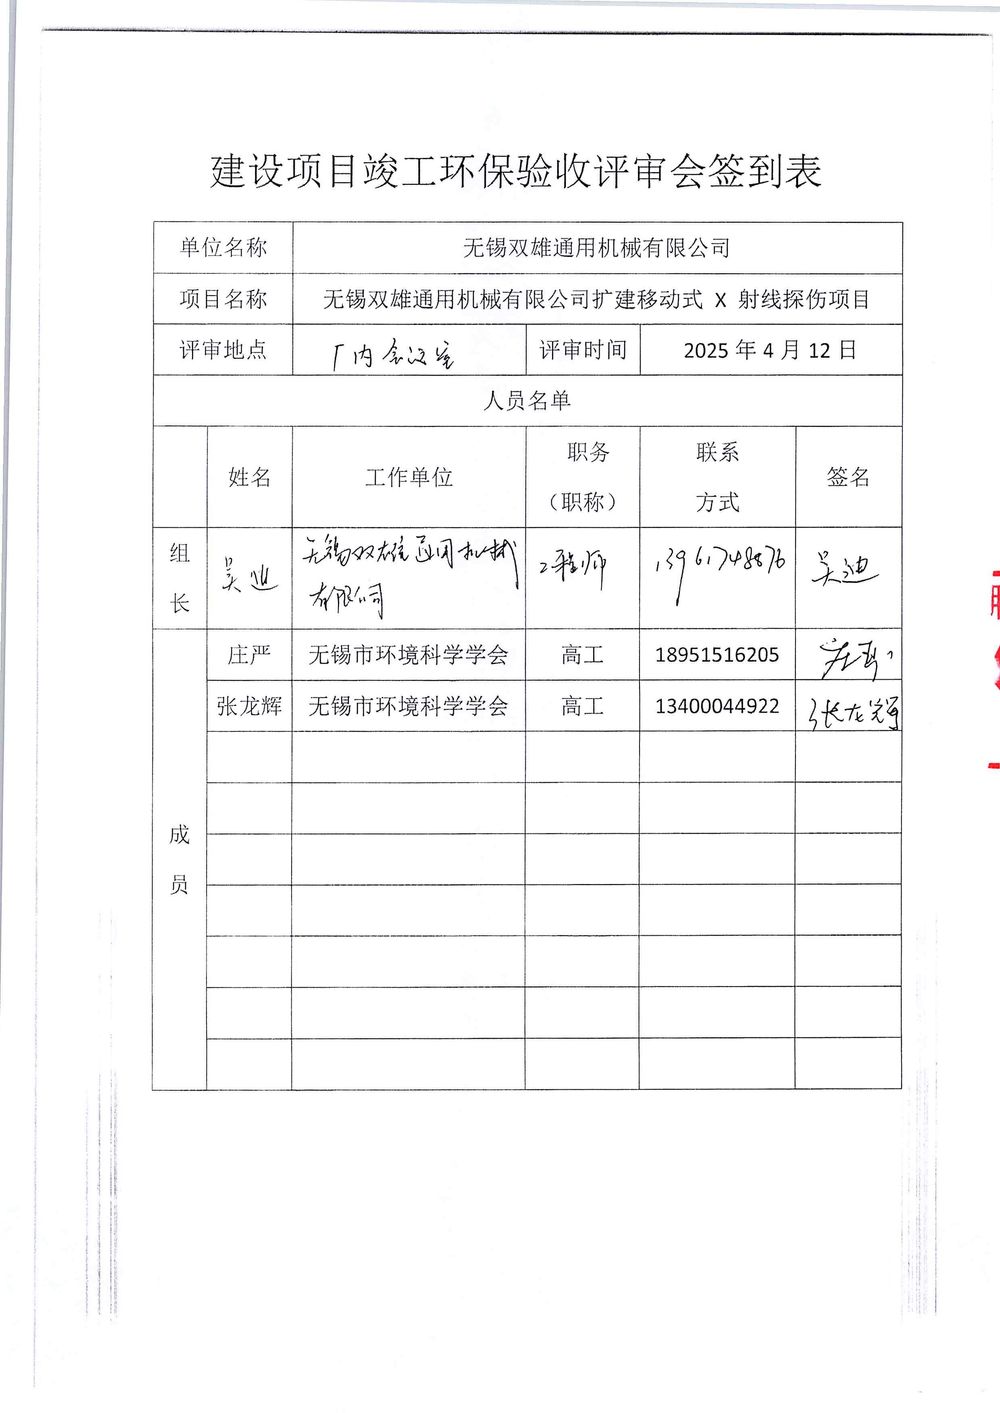 建设项目竣工环保验收评审会签到表
单位名称 无锡双雄通用机械有限公司
项目名称 无锡双雄通用机械有限公司扩建移动式 X 射线探伤项目
评审地点 厂内会议室 评审时间 2025 年 4 月 12 日
人员名单
姓名 工作单位 职务（职称） 联系方式 签名
组长 吴迪 无锡双雄通用机械有限公司 工程师 13961748876 吴迪
成员
庄严 无锡市环境科学学会 高工 18951516205 庄严
张龙辉 无锡市环境科学学会 高工 13400044922 张龙辉